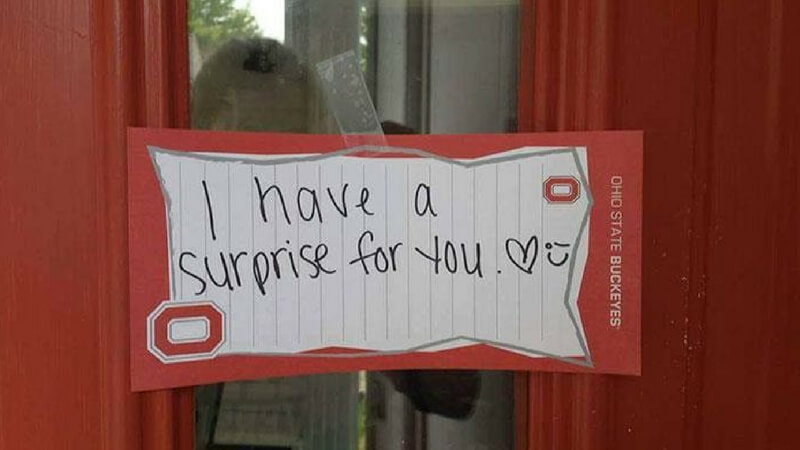 I have a
surprise for you. ♡ :)
OHIO STATE BUCKEYES